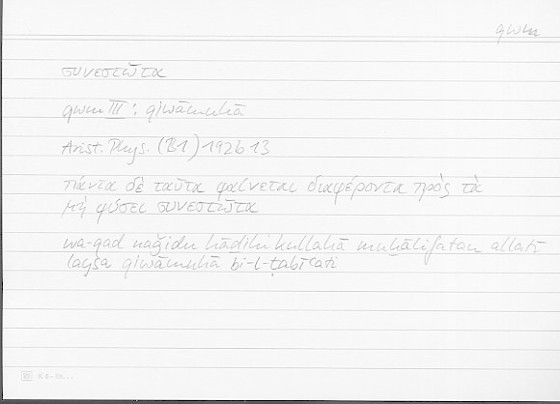 qwm
συνεστῶτα
qwm III : qiwāmuhā
Arist. Phys. (B1) 192b13
πάντα δὲ ταῦτα φαίνεται διαφέροντα πρὸς τὰ
μὴ φύσει συνεστῶτα
wa-qad naǧidu hāḏihi kullahā muḫālifatan allatī
laysa qiwāmuhā bi-l-ṭabīʿati